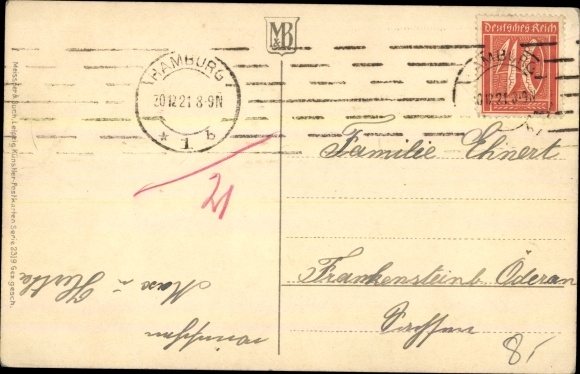 M&B
Deutsches Reich
40
HAMBURG
30.12.21 8-9N
* 1 b
HAMBURG
30.12.21 8-9N
Familie Ehnert
Frankenstein b. Öderan
Sachsen
8,-
wünschen
Max u Hertha
Meissner & Buch, Leipzig Künstler-Postkarten Serie 2319 Ges. gesch.